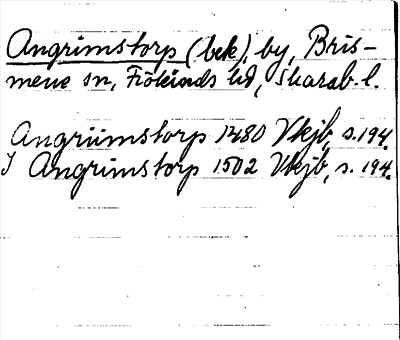 Angrimstorp (bek), by, Bris-
mene sn, Frökinds hd, Skarab. l.
Angriimstorp 1480 Vkjb, s. 194.
I Angrimstorp 1502 Vkjb, s. 194.